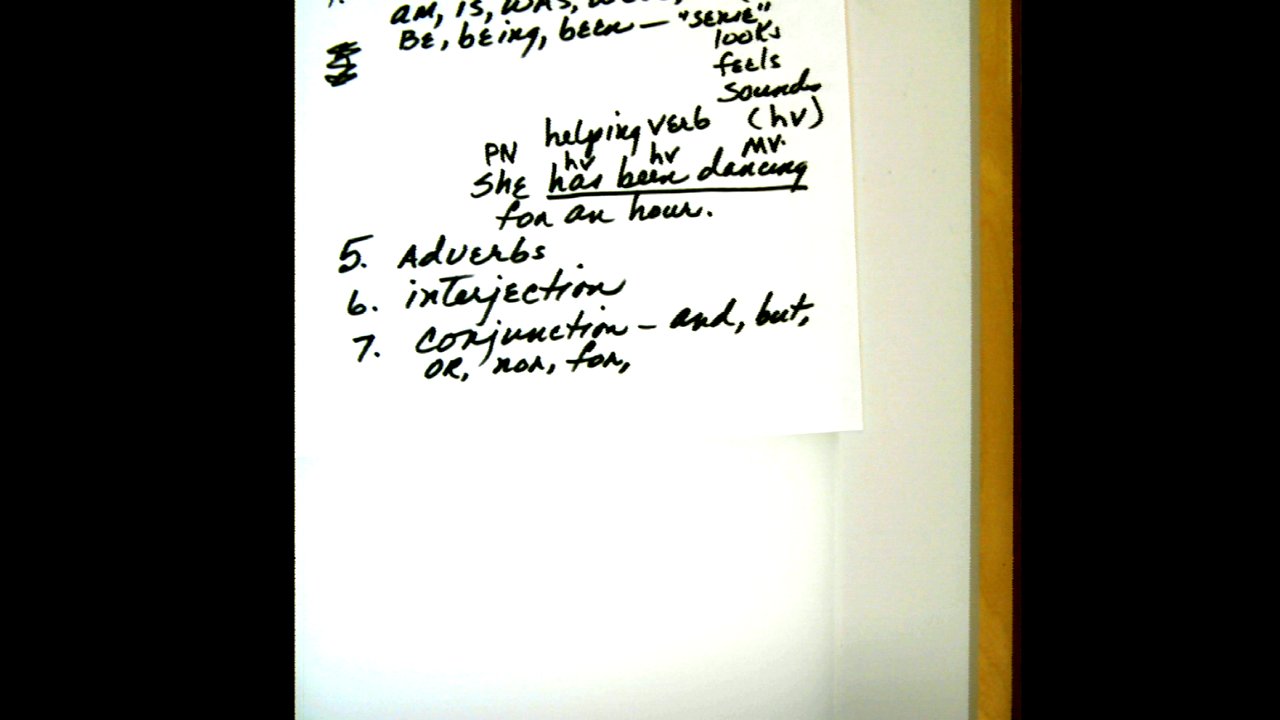 am, is, was,
BE, being, been —
looks
feels
sounds
helping verb (hv)
PN hv hv MV.
She has been dancing
for an hour.
5. Adverbs
6. interjection
7. conjunction – and, but,
OR, nor, for,